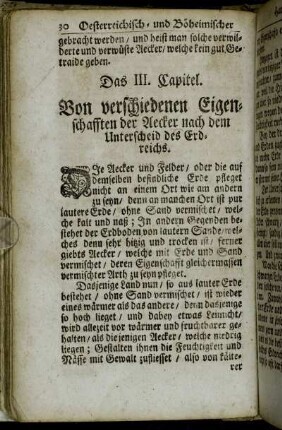 30 Oesterreichisch- und Böheimischer
gebracht werden / und heist man solche verwil-
derte und verwüste Aecker / welche kein gut Ge-
traide geben.
Das III. Capitel.
Von verschiedenen Eigen-
schafften der Aecker nach dem
Unterscheid des Erd-
reichs.
Die Aecker und Felder / oder die auf
demselben befindliche Erde pfleget
nicht an einem Ort wie am andern
zu seyn / denn an manchen Ort ist pur
lautere Erde / ohne Sand vermischet / wel-
che kalt und naß ; In andern Gegenden be-
stehet der Erdboden von lautern Sande / wel-
ches denn sehr hitzig und trocken ist / ferner
giebts Aecker / welche mit Erde und Sand
vermischet / deren Eigenschafft gleichermassen
vermischter Arth zu seyn pfleget.
Dasjenige Land nun / so aus lauter Erde
bestehet / ohne Sand vermischet / ist wieder
eines wärmer als das andere / denn dasjenige
so hoch lieget / und dabey etwas Leimicht /
wird allezeit vor wärmer und fruchtbarer ge-
halten / als diejenigen Aecker / welche niedrig
liegen ; Gestalten ihnen die Feuchtigkeit und
Nässe mit Gewalt zufliesset / also von kälte-
rer